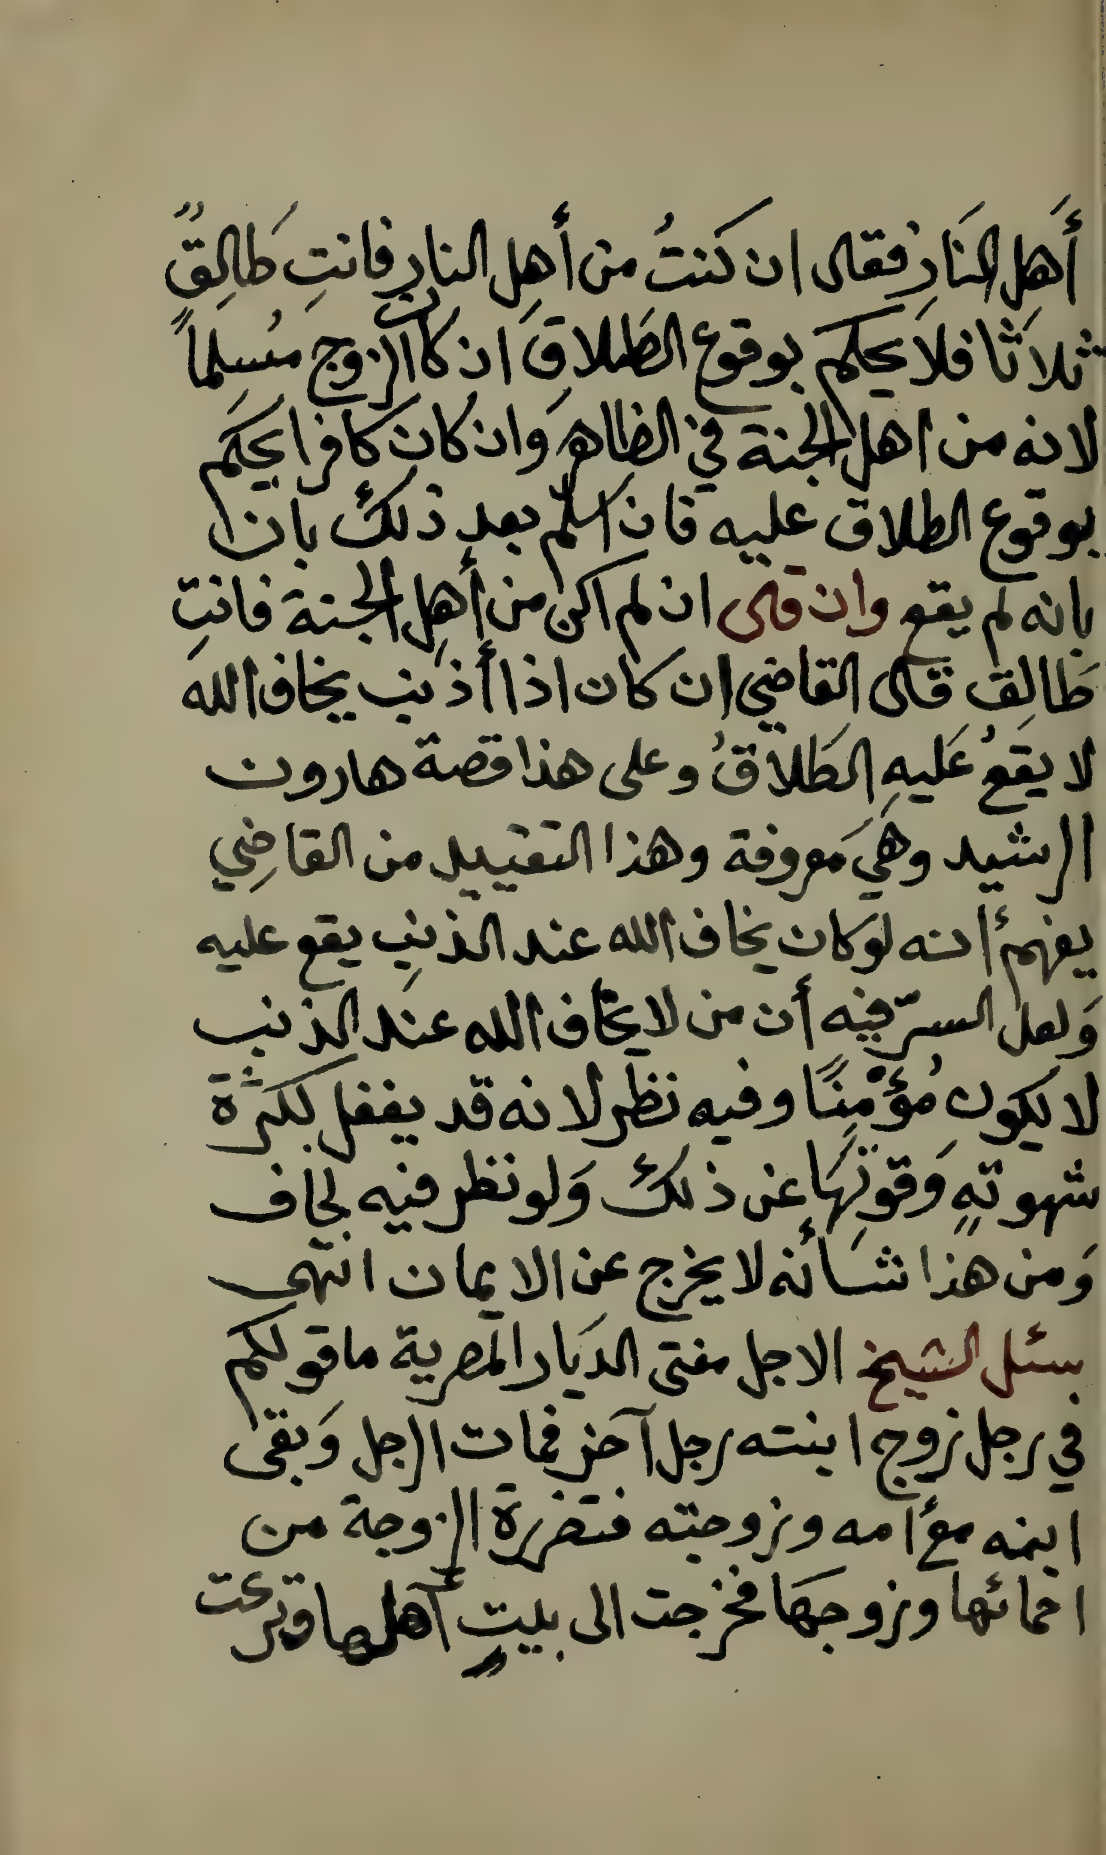 أَهل النَار فقال ان كنتُ من أَهِل النار فانتِ طَالِقٌ
ثلاَثا فلا يحكم بوقوع الطَلاقَ ان كان الزوج مُسلِماً
لانه من اهل الجنة في الظاهر وَان كان كافرا يحكَم
بوقوع الطلاق عليه فان اسلم بعد ذلك بان
بانه لم يقع وان قال ان لم اكن من أَهِل الجنة فانتِ
طَالِق قال القاضي ان كان اذا أذنب يخاف الله
لا يقعُ عَليهِ الطَلاَقُ وعلى هذا قصة هارون
الرشيد وهيَ مَعروفة وهذا التقييد من القاضِي
يفهم أنه لو كان يخاف الله عند الذنبِ يقع عليه
وَلعل السرّ فيه أن من لا يخاف الله عند الذنب
لا يكون مُؤْمِنًا وفيه نظر لانه قد يغفل لكثرة
شهوتهِ وَقوتهَا عن ذلك وَلو نظر فيه لخاف
وَمن هذا شَأنه لا يخرج عن الايمان انتهى
سئل الشيخ الاجل مفتى الديَار المصرية ما قولكم
في رجل زوج ابنته رجل آخر فمات الرجل وَبقى
ابنه مع أمه وزوجته فتضررة الزوجة من
احمائها وزوجهَا فخرجت الى بيتِ أهلها وترعت